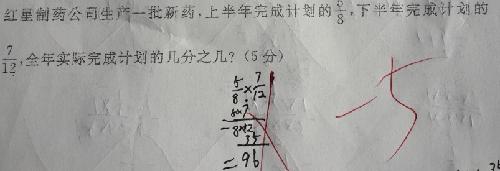 红星制药公司生产一批新药,上半年完成计划的5/8,下半年完成计划的
7/12,全年实际完成计划的几分之几?(5分)
5/8×7/12
-5
8×12
35
=96